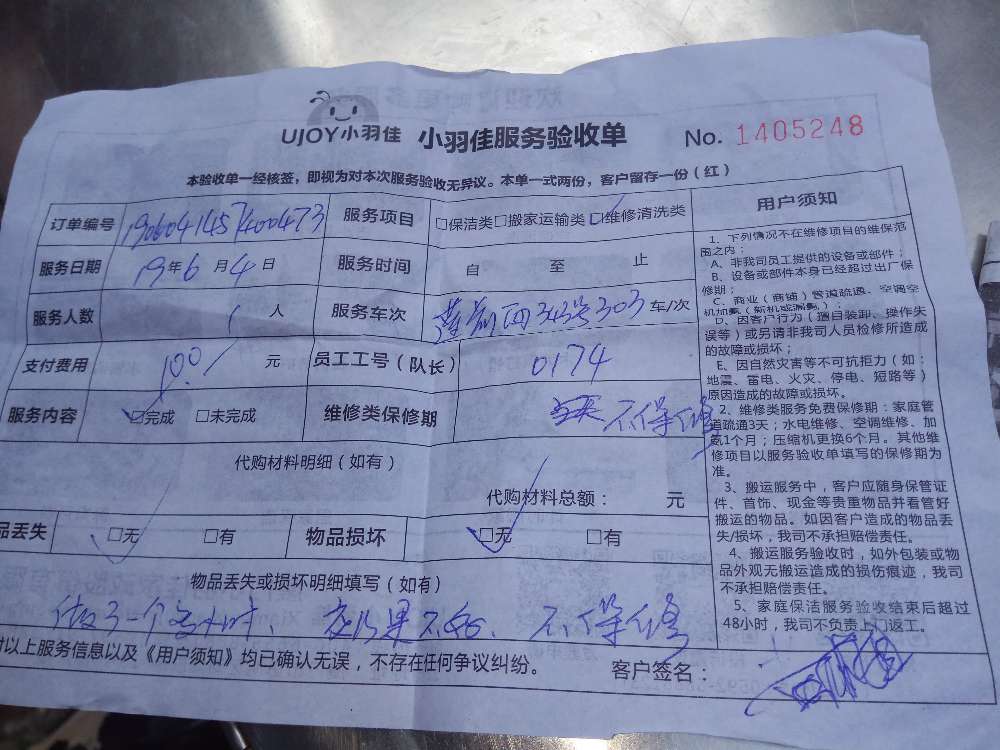 UJOY小羽佳 小羽佳服务验收单 No. 1405248
本验收单一经核签，即视为对本次服务验收无异议。本单一式两份，客户留存一份（红）
订单编号 1906041457400473 服务项目 □保洁类□搬家运输类□维修清洗类
服务日期 19年6月4日 服务时间 自 至 止
服务人数 1 人 服务车次 莲前西343号303 车/次
支付费用 100 元 员工工号（队长） 0174
服务内容 □完成 □未完成 维修类保修期 不保修
代购材料明细（如有）
代购材料总额： 元
品丢失 □无 □有 物品损坏 □无 □有
物品丢失或损坏明细填写（如有）
做了一个多小时、效果不好、不保修
对以上服务信息以及《用户须知》均已确认无误，不存在任何争议纠纷。 客户签名：
用户须知
1、下列情况不在维修项目的维保范
围之内：
A、非我司员工提供的设备或部件；
B、设备或部件本身已经超过出厂保
修期；
C、商业（商铺）管道疏通、空调空
机加氟（新机或漏氟）；
D、因客户行为（擅自装卸、操作失
误等）或另请非我司人员检修所造成
的故障或损坏；
E、因自然灾害等不可抗拒力（如：
地震、雷电、火灾、停电、短路等）
原因造成的故障或损坏。
2、维修类服务免费保修期：家庭管
道疏通3天；水电维修、空调维修、加
氟1个月；压缩机更换6个月。其他维
修项目以服务验收单填写的保修期为
准。
3、搬运服务中，客户应随身保管证
件、首饰、现金等贵重物品并看管好
搬运的物品。如因客户造成的物品丢
失/损坏，我司不承担赔偿责任。
4、搬运服务验收时，如外包装或物
品外观无搬运造成的损伤痕迹，我司
不承担赔偿责任。
5、家庭保洁服务验收结束后超过
48小时，我司不负责上门返工。